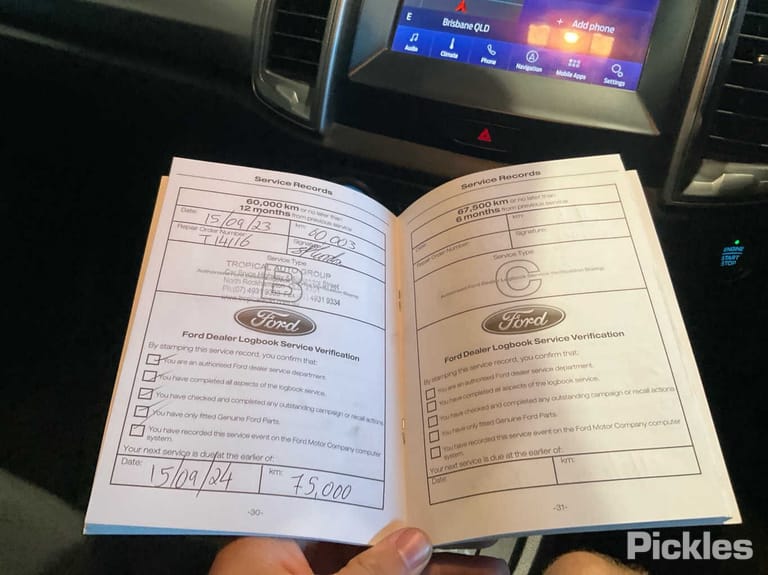 E
Brisbane QLD
+ Add phone
Audio
Climate
Phone
Navigation
Mobile Apps
Settings
ENGINE
START
STOP
Service Records
60,000 km or no later than
12 months from previous service
Date:
15/09/23
km:
60,003
Repair Order Number:
T14116
Signature:
Service Type
B
TROPICAL AUTO GROUP
North
Ph:(07) 4931 4931 9334
Ford
Ford Dealer Logbook Service Verification
By stamping this service record, you confirm that:
You are an authorised Ford dealer service department.
You have completed all aspects of the logbook service.
You have checked and completed any outstanding campaign or recall actions.
You have only fitted Genuine Ford Parts.
You have recorded this service event on the Ford Motor Company computer
system.
Your next service is due at the earlier of:
Date:
15/09/24
km:
75,000
-30-
Service Records
67,500 km or no later than
6 months from previous service
Date:
km:
Repair Order Number:
Signature:
Service Type
C
Authorised Ford Dealer Logbook Service Verification Stamp
Ford
Ford Dealer Logbook Service Verification
By stamping this service record, you confirm that:
You are an authorised Ford dealer service department.
You have completed all aspects of the logbook service.
You have checked and completed any outstanding campaign or recall actions.
You have only fitted Genuine Ford Parts.
You have recorded this service event on the Ford Motor Company computer
system.
Your next service is due at the earlier of:
Date:
km:
-31-
Pickles